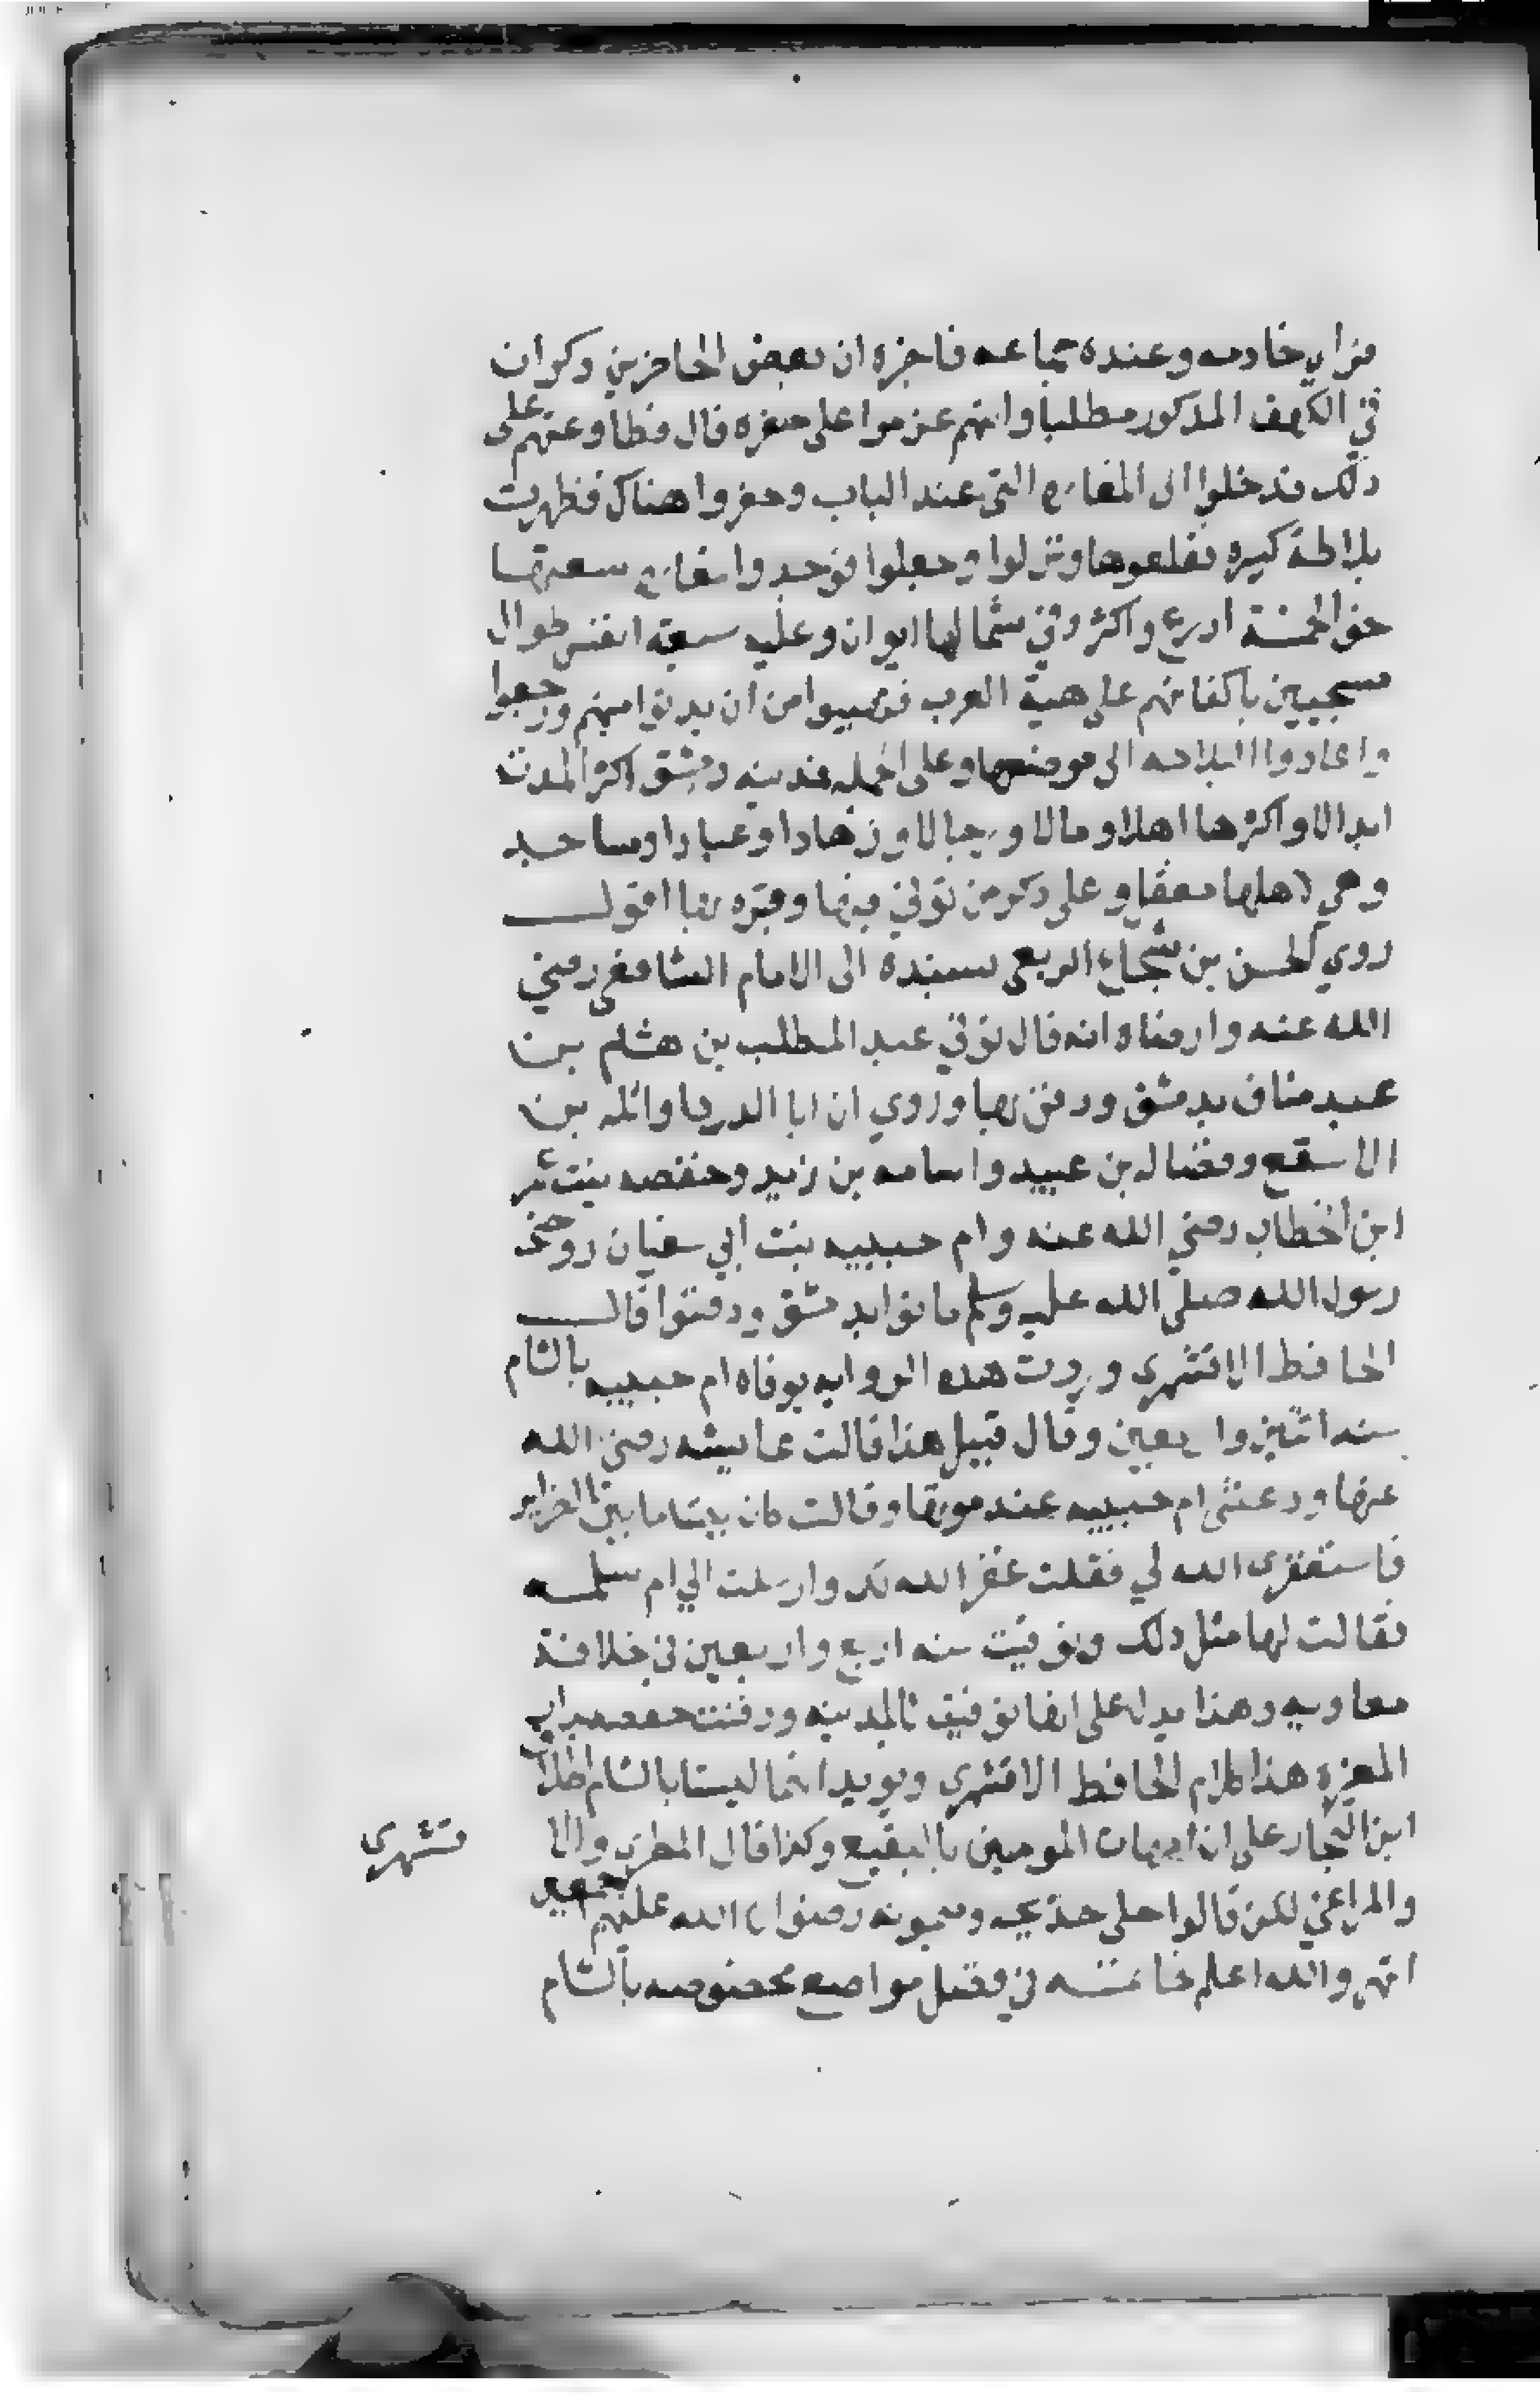 فراي خادمه وعنده جماعه فاخبره ان بعض الحاضرين ذكر ان
في الكهف المذكور مطلبا وانهم عزموا على حفره قال فطاوعتهم على
ذلك فدخلوا الى المغاره التي عند الباب وحفروا هناك فظهرت
بلاطة كبيره فقلعوها ونزلوا وجعلوا فوجدوا مغاره سعتها
نحو الخمسة ادرع واكثر وفي شمالها ايوان وعليه سبعة انفس طوال
مسجيين باكفانهم على هيئة العرب فتهيبوا من ان يدنوا منهم ورجعوا
واعادوا البلاطه الى موضعها وعلى الجمله فمدينه دمشق اكثر المدن
ابدالا واكثرها اهلا ومالا ورجالا وزهادا وعبادا ومساجد
وهي لاهلها معقل وعلى ذكر من توفي فيها وقبره بها اقول
روي الحسن بن شجاع الربعي بسنده الى الامام الشافعي رضي
الله عنه وارضاه انه قال توفي عبد المطلب بن هشام بن
عبد مناف بدمشق ودفن بها وروي ان ابا الدردا واثله بن
الاسقع وفضاله بن عبيد واسامه بن زيد وحفصه بنت عمر
ابن الخطاب رضي الله عنه وام حبيبه بنت ابي سفيان زوجتي
رسول الله صلى الله عليه وسلم ماتوا بدمشق ودفنوا قال
الحافظ الاقشهري وردت هذه الروايه بوفاه ام حبيبه بالشام
سنه اثنين واربعين وقال قبيل هذا قالت عايشه رضي الله
عنها ودعتني ام حبيبه عند موتها وقالت كان بيننا ما بين الضراير
فاستغفرى الله لي فقلت غفر الله لك وارسلت الي ام سلمه
فقالت لها مثل ذلك وتوفيت سنه اربع واربعين في خلافة
معاويه وهذا يدل على انها توفيت بالمدينه ودفنت
هذا كلام الحافظ الاقشهري ويويد انهما ليستا بالشام اطلاق
ابن النجار على ان امهات المومنين بالبقيع وكذا قال المطري والا
قشهرى
والمراغي لكن قالوا خلى خديجه وميمونه رضوان الله عليهم اجمعين
انتهى والله اعلم خاتمه في فضل مواضع مخصوصه بالشام